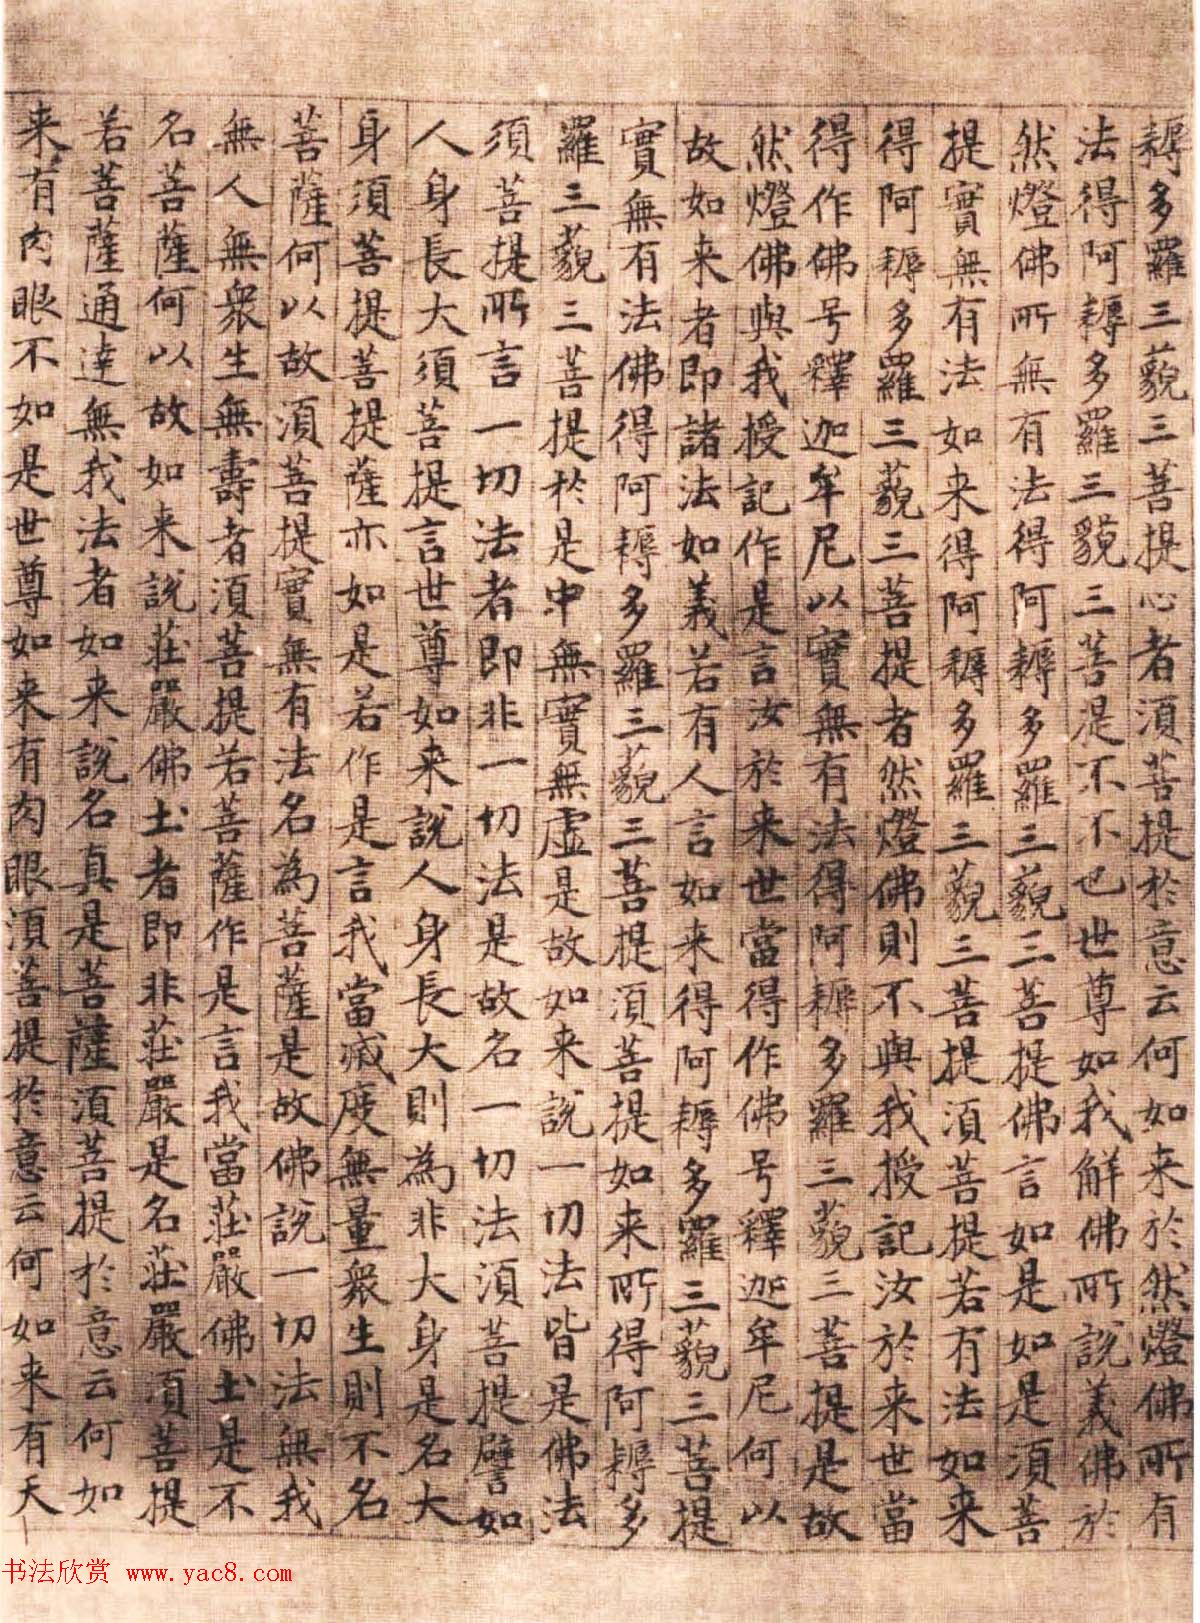 耨多羅三藐三菩提心者須菩提於意云何如来於然燈佛所有
法得阿耨多羅三藐三菩提不不也世尊如我解佛所說義佛於
然燈佛所無有法得阿耨多羅三藐三菩提佛言如是如是須菩
提實無有法如来得阿耨多羅三藐三菩提須菩提若有法如来
得阿耨多羅三藐三菩提者然燈佛則不與我授記汝於来世當
得作佛号釋迦牟尼以實無有法得阿耨多羅三藐三菩提是故
然燈佛與我授記作是言汝於来世當得作佛号釋迦牟尼何以
故如来者即諸法如義若有人言如来得阿耨多羅三藐三菩提
實無有法佛得阿耨多羅三藐三菩提須菩提如来所得阿耨多
羅三藐三菩提於是中無實無虚是故如来說一切法皆是佛法
須菩提所言一切法者即非一切法是故名一切法須菩提譬如
人身長大須菩提言世尊如来說人身長大則為非大身是名大
身須菩提菩提薩亦如是若作是言我當滅度無量衆生則不名
菩薩何以故須菩提實無有法名為菩薩是故佛說一切法無我
無人無衆生無壽者須菩提若菩薩作是言我當莊嚴佛土是不
名菩薩何以故如来說莊嚴佛土者即非莊嚴是名莊嚴須菩提
若菩薩通達無我法者如来說名真是菩薩須菩提於意云何如
来有肉眼不如是世尊如来有肉眼須菩提於意云何如来有天
书法欣赏 www.yac8.com